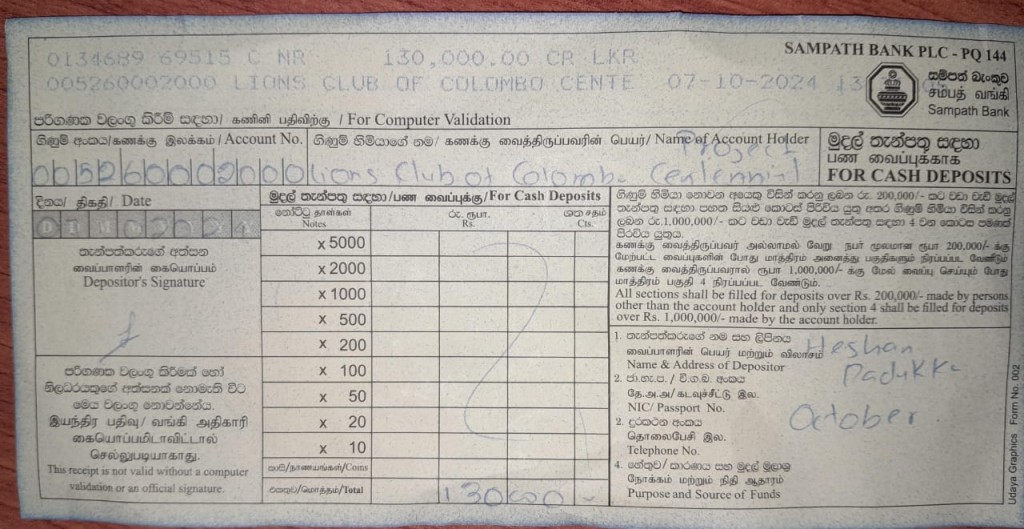 SAMPATH BANK PLC - PQ 144
0134689 69515 C NR 130,000.00 CR LKR
005260002000 LIONS CLUB OF COLOMBO CENTE 07-10-2024 13
සම්පත් බැංකුව
சம்பத் வங்கி
Sampath Bank
පරිගණක වලංගු කිරීම් සඳහා/ கணினி பதிவிற்கு / For Computer Validation
ගිණුම් අංකය/கணக்கு இலக்கம்/Account No.
ගිණුම් හිමියාගේ නම/ கணக்கு வைத்திருப்பவரின் பெயர்/ Name of Account Holder
Project
005260002000 Lions Club of Colombo Centennial
මුදල් තැන්පතු සඳහා
பண வைப்புக்காக
FOR CASH DEPOSITS
දිනය/ திகதி/ Date
තැන්පත්කරුගේ අත්සන
வைப்பாளரின் கையொப்பம்
Depositor's Signature
පරිගණක වලංගු කිරීමක් හෝ
නිලධරයකුගේ අත්සනක් නොමැති විට
මෙය වලංගු නොවන්නේය.
இயந்திர பதிவு/ வங்கி அதிகாரி
கையொப்பமிடாவிட்டால்
செல்லுபடியாகாது.
This receipt is not valid without a computer
validation or an official signature.
මුදල් තැන්පතු සඳහා/பண வைப்புக்கு/For Cash Deposits
නෝට්ටු நாள்கள்
Notes
රු. ரூபா.
Rs.
ශත சதம்
Cts.
x 5000
x 2000
x 1000
x 500
x 200
x 100
x 50
x 20
x 10
කාසි/நாணயங்கள்/Coins
එකතුව/மொத்தம்/Total
130000 -
ගිණුම් හිමියා නොවන අයෙකු විසින් කරනු ලබන රු. 200,000/- කට වඩා වැඩි මුදල්
තැන්පතු සඳහා පහත සියළු කොටස් පිරවිය යුතු අතර ගිණුම් හිමියා විසින් කරනු
ලබන රු.1,000,000/- කට වඩා වැඩි මුදල් තැන්පතු සඳහා 4 වන කොටස පමණක්
පිරවිය යුතුය.
கணக்கு வைத்திருப்பவர் அல்லாமல் வேறு நபர் மூலமான ரூபா 200,000/- க்கு
மேற்பட்ட வைப்புகளின் போது மாத்திரம் அனைத்து பகுதிகளும் நிரப்பப்பட வேண்டும்
கணக்கு வைத்திருப்பவரால் ரூபா 1,000,000/- க்கு மேல் வைப்பு செய்யும் போது
மாத்திரம் பகுதி 4 நிரப்பப்பட வேண்டும்.
All sections shall be filled for deposits over Rs. 200,000/- made by persons
other than the account holder and only section 4 shall be filled for deposits
over Rs. 1,000,000/- made by the account holder.
1. තැන්පත්කරුගේ නම සහ ලිපිනය
வைப்பாளரின் பெயர் மற்றும் விலாசம்
Name & Address of Depositor
Heshan
Padukka
2. ජා.හැ.ප. / වි.ග.බ. අංකය
தே.அ.அ/ கடவுச்சீட்டு இல.
NIC/ Passport No.
October
3. දුරකථන අංකය
தொலைபேசி இல.
Telephone No.
4. හේතුව/ කාරණය සහ මුදල් මූලාශ්‍ර
நோக்கம் மற்றும் நிதி ஆதாரம்
Purpose and Source of Funds
Udaya Graphics Form No. 002